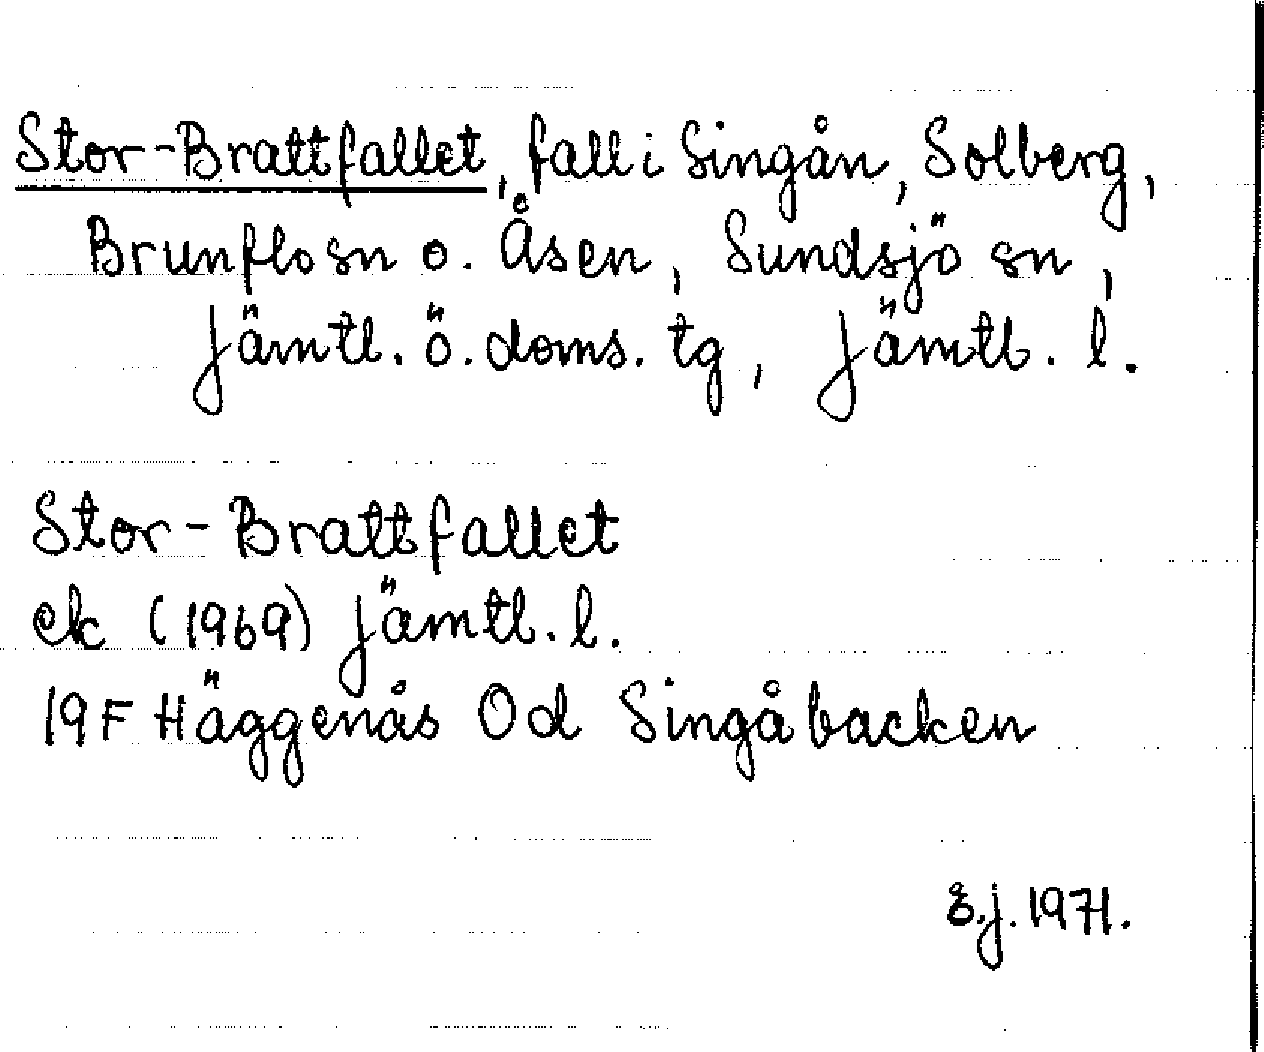 Stor-Brattfallet, fall i Singån, Solberg,
Brunflo sn o. Åsen, Sundsjö sn,
Jämtl. ö. doms. tg, Jämtl. l.
Stor-Brattfallet
ek (1969) Jämtl. l.
19F Häggenås 0d Singåbacken
E.j. 1971.